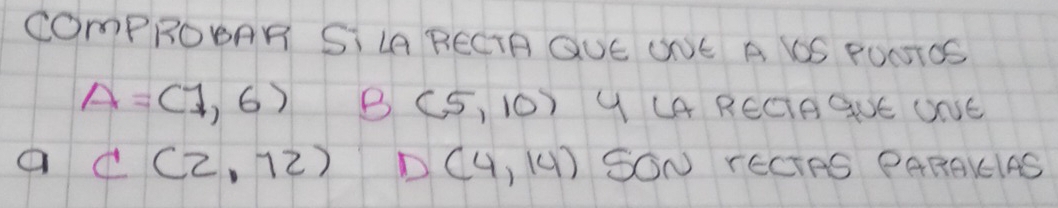 COMPROBAR Si LA RECTA QUE UNE A LOS PUNTOS
A = (1, 6) B (5, 10) Y LA RECTA QUE UNE
a C (2, 12) D (4, 14) SON rECTAS PARALELAS